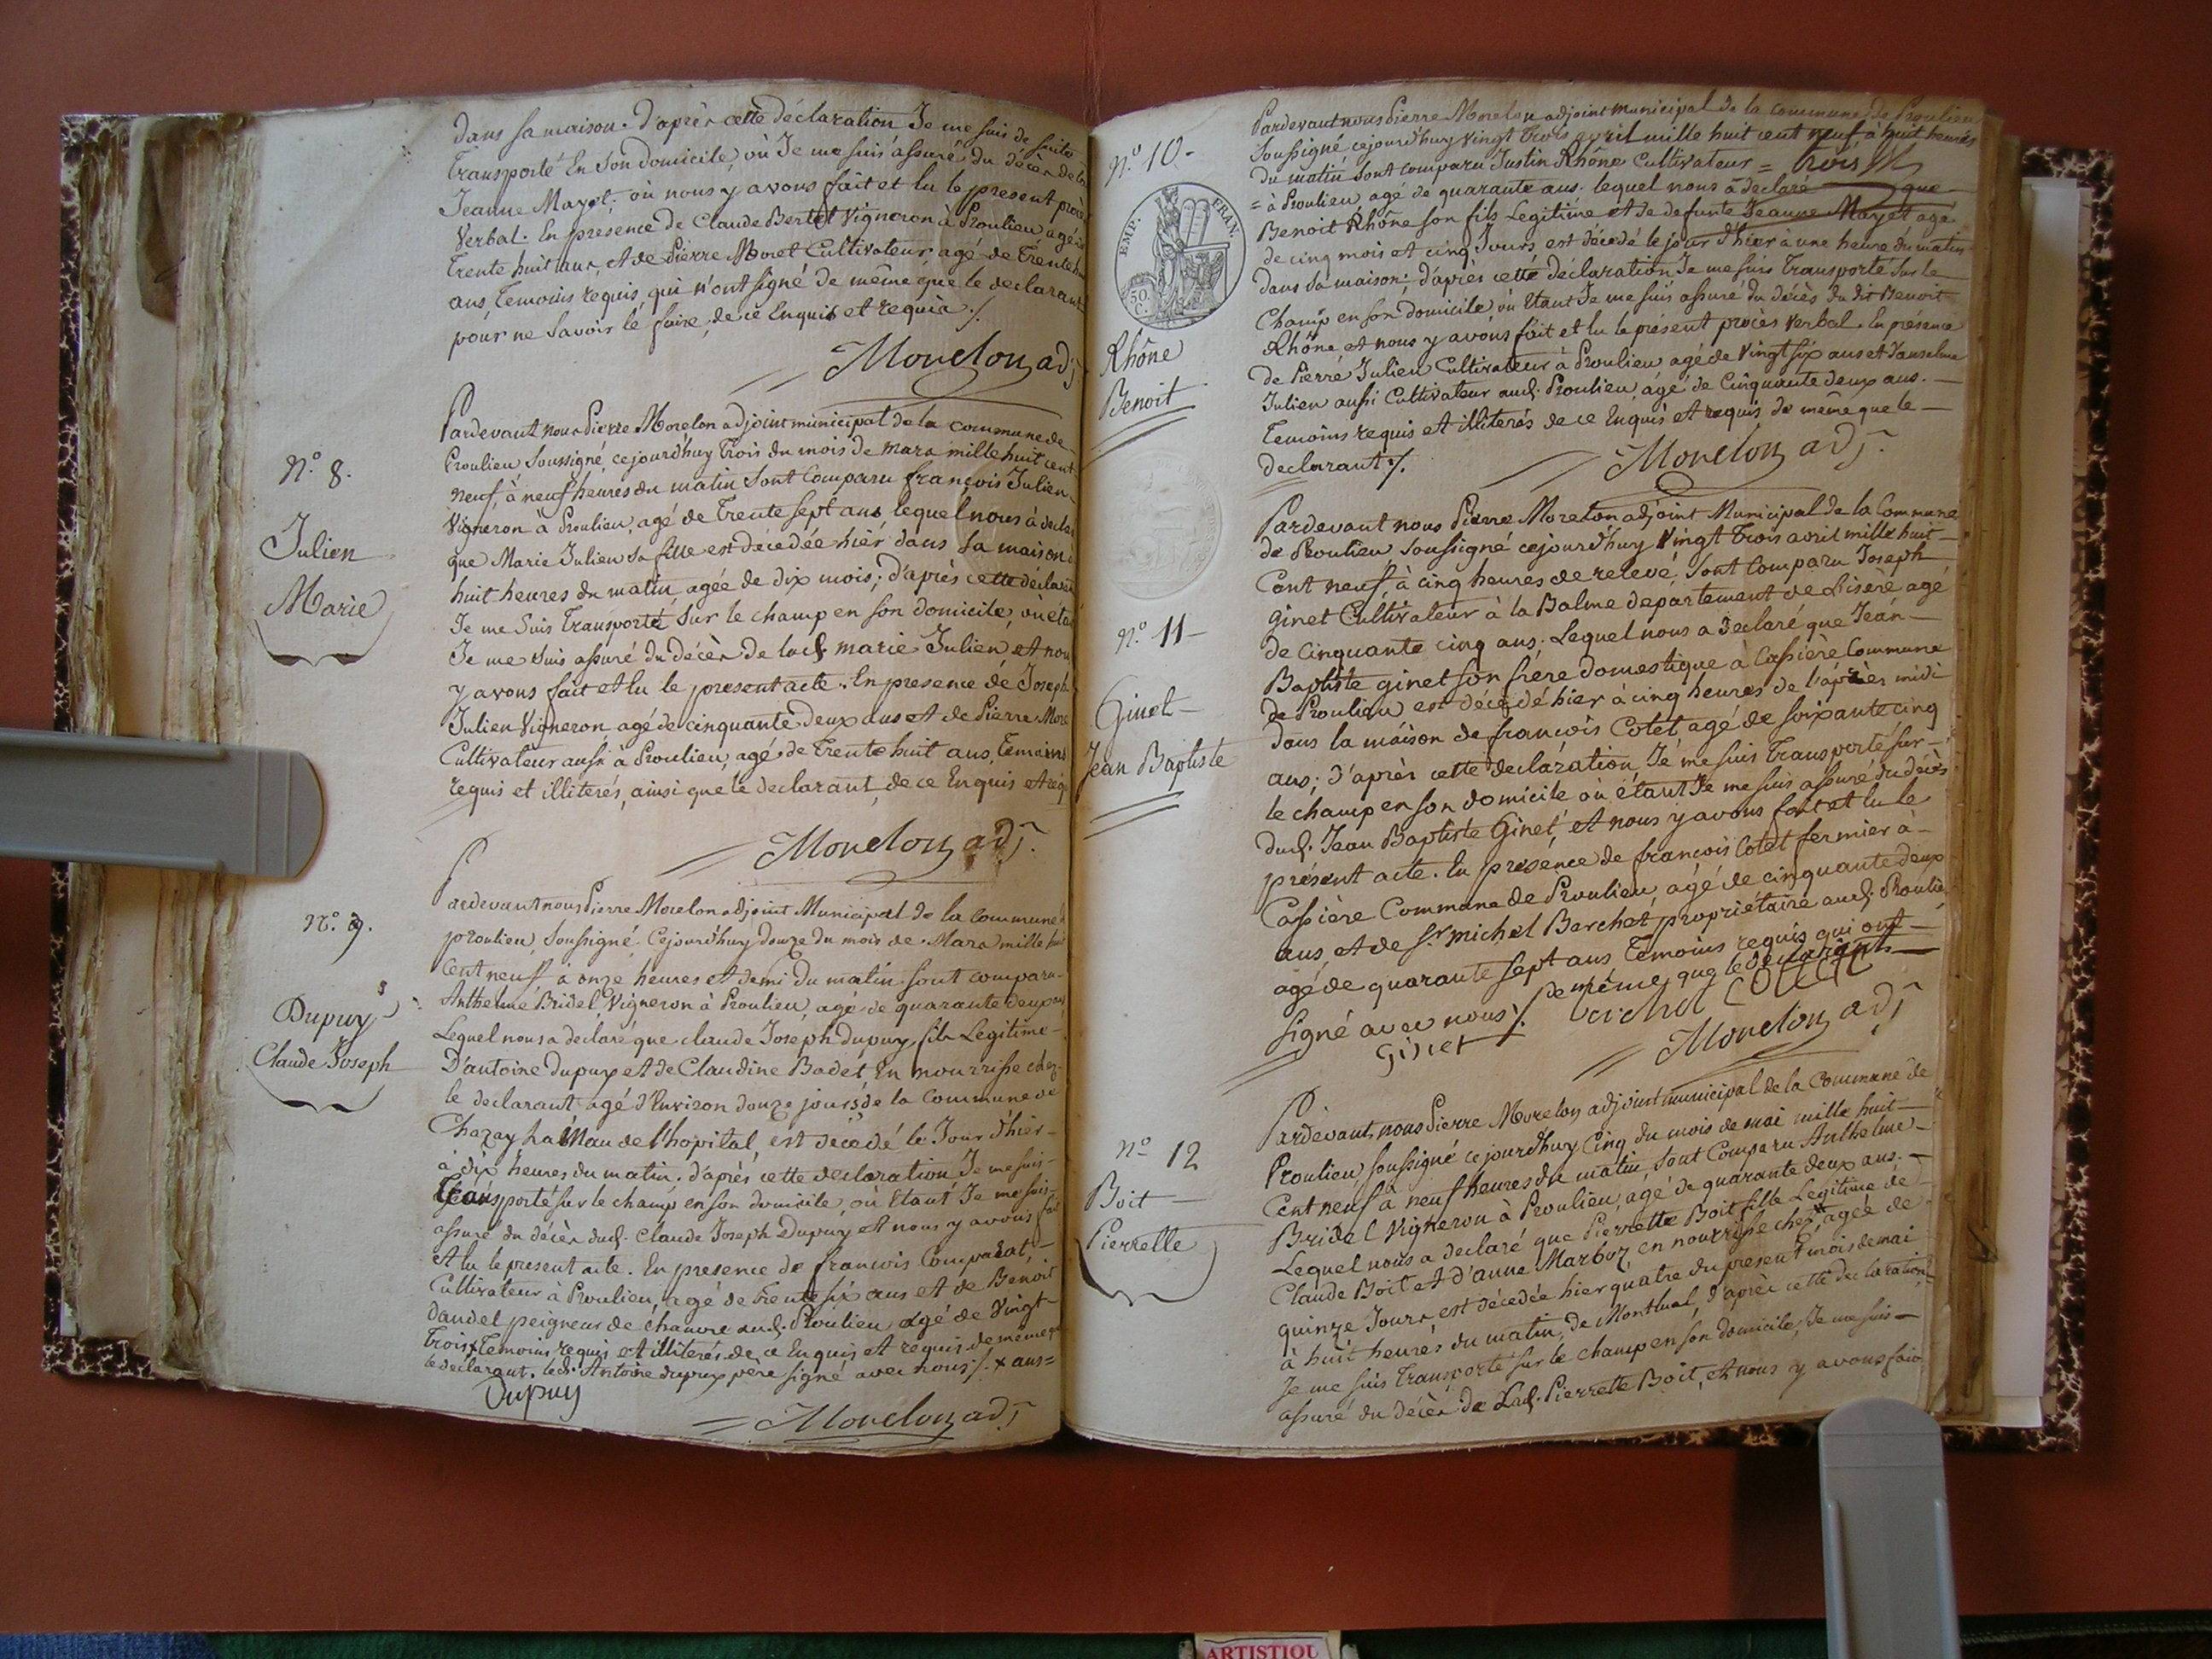 Dans sa maison. D'après cette déclaration Je me suis de suite
Transporté En Son domicile, où Je me suis assuré du décès de la
Jeanne Mayet. où nous y avons fait et lu le present procès
Verbal. En présence de Claude Bertet Vigneron à Proulieu agé de
Trente huit ans, et de Pierre Moret Cultivateur, agé de Trente
ans, Temoins requis, qui n'ont signé de même que le declarant
pour ne Savoir le faire, de ce Enquis et requis ./.
Morelon adj
N.º 8.
Julien
Marie
Pardevant nous Pierre Morelon adjoint municipal de la commune de
Proulieu Soussigné, cejourd'huy Trois du mois de mars mille huit cent
neuf, à neuf heures du matin Sont Comparu françois Julien
Vigneron à Proulieu, agé de Trente sept ans lequel nous à declaré
que Marie Julien sa fille est décédée hiér dans Sa maison à
huit heures du matin, agée de dix mois; d'après cette déclaration
Je me Suis Transporté Sur le champ en son domicile, où étant
Je me suis assuré du décès de lad. marie Julien et nous
y avons fait et lu le present acte. En presence de Joseph
Julien Vigneron agé de cinquante deux ans et de Pierre More
Cultivateur aussi à Proulieu, agé de Trente huit ans, Temoins
requis et illiterés, ainsi que le declarant, de ce Enquis et req
Morelon adj.
N.º 9.
Dupuy
Claude Joseph
Pardevant nous Pierre Morelon adjoint Municipal de la Commune
proulieu, Soussigné Cejourd'huy douze du mois de Mars mille huit
Cent neuf, à onze heures et demi du matin sont comparu
Anthelme Bridel, Vigneron à Proulieu, agé de quarante deux ans
Lequel nous a declaré que claude Joseph dupuy fils Legitime
D'antoine dupuy et de Claudine Badet En nourrisse chez
le declarant agé d'Environ douze jours, de la Commune de
Chazay La Man de l'hopital, est décédé le Jour d'hier
à dix heures du matin. d'après cette declaration, Je me suis
Transporté sur le champ en son domicile, où Etant Je me suis
assuré du décès dud. Claude Joseph Dupuy et nous y avons fait
et lu le present acte. En presence de francois Comparat,
Cultivateur à Proulieu, agé de trente six ans et de Benoit
Dandel peigneur de chanvre aud. Proulieu agé de Vingt
Trois x Temoins requis et illiterés de ce Enquis et requis de même que
le declarant. led. Antoine dupuy père signé avec nous ./. x ans =
Dupuy
Morelon adj
N.º 10
EMP. FRAN.
50 C.
Rhône
Benoit
Pardevant nous Pierre Morelon adjoint municipal de la commune de Proulieu
Soussigné cejourd'huy Vingt Trois avril mille huit cent neuf à huit heures
du matin sont comparu Justin Rhône Cultivateur =
= à Proulieu, agé de quarante ans. lequel nous à declaré que
Benoit Rhône son fils Legitime et de defunte Jeanne Mayet agé
de cinq mois et cinq Jours, est décedé le jour d'hier à une heure du matin
dans sa maison; d'après cette déclaration Je me suis Transporté Sur le
Champ en son domicile, où Etant Je me suis assuré du décès du dit Benoit
Rhône et nous y avons fait et lu le présent procès Verbal. En présence
de Pierre Julien Cultivateur à Proulieu agé de Vingt six ans et d'anselme
Julien aussi Cultivateur aud. Proulieu, agé de Cinquante deux ans.
Temoins requis et illiterés de ce Enquis et requis de même que le
declarant ./.
Morelon adj.
N.º 11
Ginet
Jean Baptiste
Pardevant nous Pierre Morelon adjoint Municipal de la Commune
de Proulieu Soussigné cejourd'huy Vingt Trois avril mille huit
Cent neuf, à cinq heures de relevé, sont comparu Joseph
ginet Cultivateur à la Balme departement de L'isere agé
de Cinquante cinq ans; Lequel nous a declaré que Jean
Baptiste ginet son frère domestique à Cassière Commune
de Proulieu est décédé hier à cinq heures de l'après midi
dans la maison de francois Cotet, agé de soixante cinq
ans; d'après cette declaration, Je me suis Transporté sur
le champ en son domicile où étant Je me suis assuré du décès
dud. Jean Baptiste Ginet, et nous y avons fait et lu le
présent acte. En présence de francois Cotet fermier à
Cassière Commune de Proulieu, agé de cinquante deux
ans, et de S.r michel Berchet, propriétaire aud. Proulieu,
agé de quarante sept ans Temoins requis qui ont
signé avec nous ./. de même que le declarant
Ginet
Morelon adj
N.º 12
Boit
Pierrette
Pardevant nous Pierre Morelon adjoint municipal de la Commune de
Proulieu soussigné cejourd'huy Cinq du mois de mai mille huit
Cent neuf à neuf heures du matin, sont Comparu Anthelme
Bridel Vigneron à Proulieu, agé de quarante deux ans.
Lequel nous a declaré que Pierrette Boit fille Legitime de
Claude Boit et d'anne Marboz en nourrisse chez agée de
quinze Jours est décédée hier quatre du present mois de mai
à huit heures du matin, de Montluel, d'après cette declaration
Je me suis Transporté sur le champ en son domicile, Je me suis
assuré du décès de Lad. Pierrette Boit, et nous y avons fait
ARTISTIQU